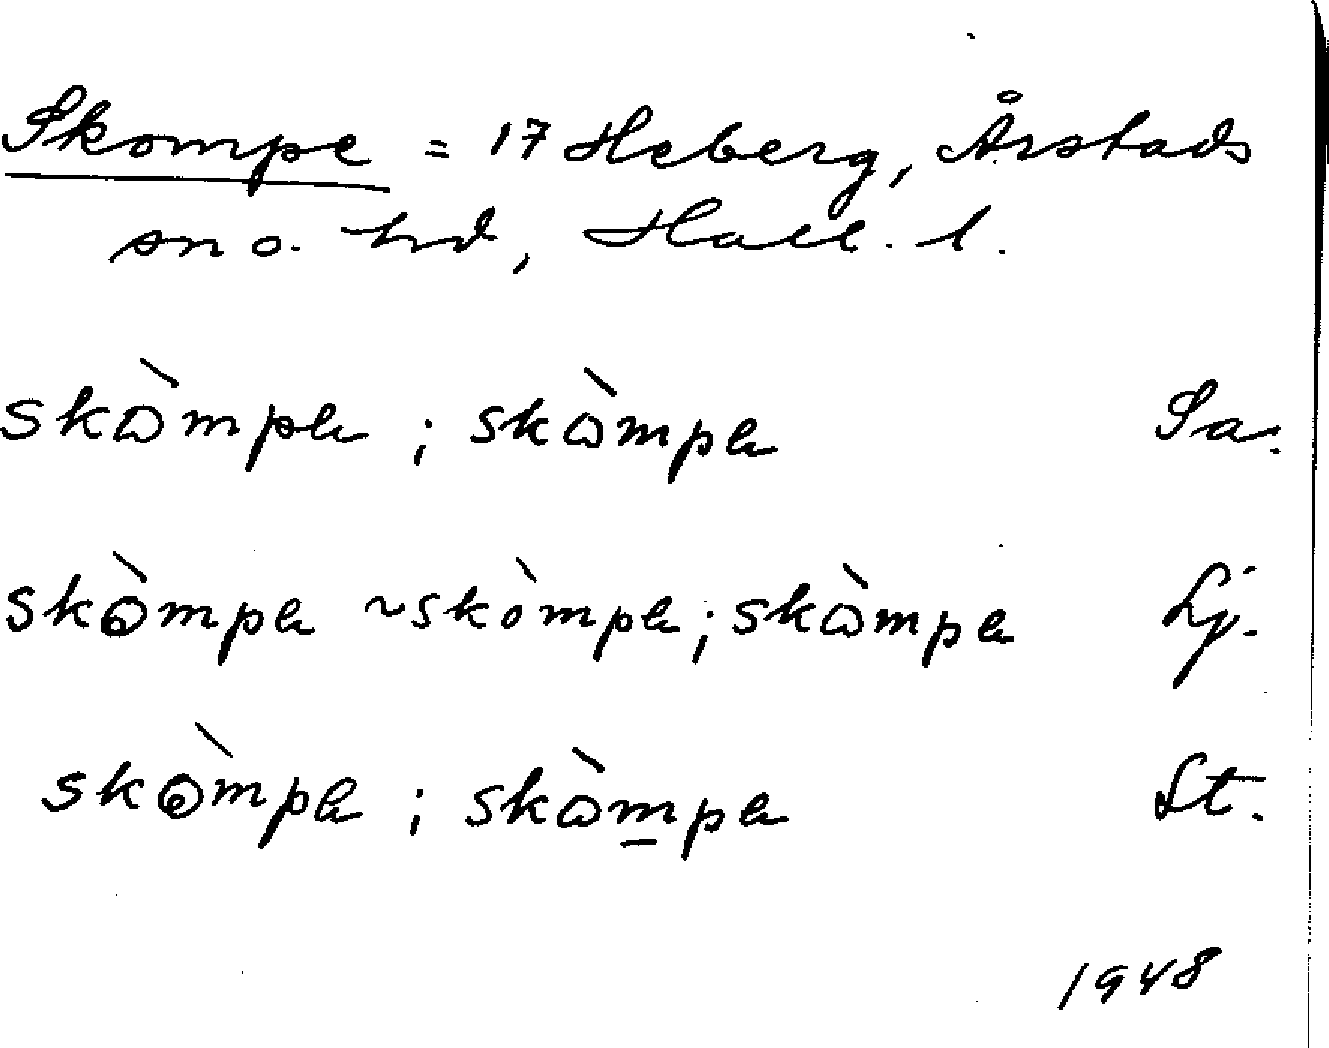 Skompe = 17 Heberg, Årstads
sn o. hd, Hall. l.
skɷ̀mpə ; skɷ̀mpə Sa.
skò̀mpə ~ skòmpə ; skɷ̀mpə Lj.
skòmpə ; skɷ̀mpə St.
1948